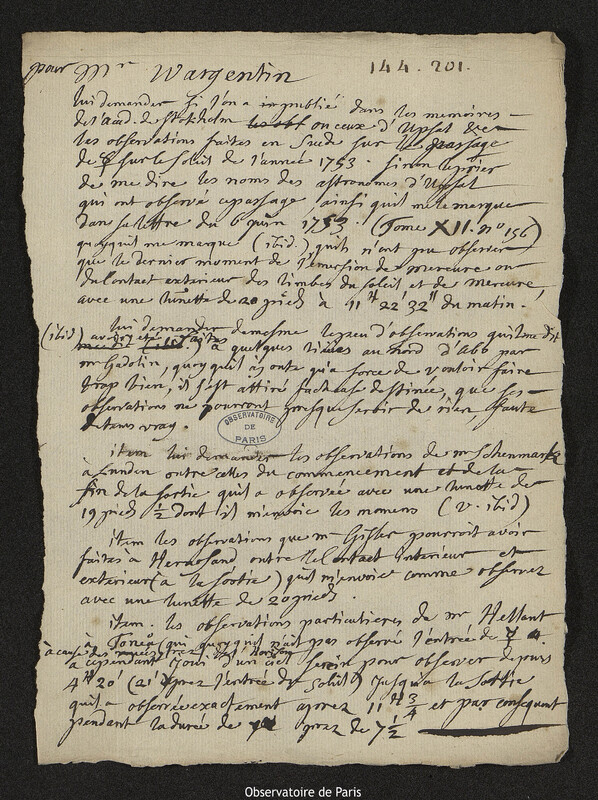 pour Mr Wargentin
144.201.
lui demander si l'on a imprimé dans les memoires
de l'Acad. de Stokholm ou ceux d'Upsal
les observations faites en Suede sur le passage
de ☿ sur le Soleil de l'année 1753. sinon le prier
de me dire les noms des astronomes d'Upsal
qui ont observé ce passage ainsi qu'il me le marque
dans sa lettre du 6 juin 1753. (Tome XII. no 156)
quoyqu'il me marque (ibid.) qu'ils n'ont pu observer
que le dernier moment de l'emersion de mercure ou
du Contact exterieur des limbes du soleil et de mercure
avec une lunette de 20 pieds à 11H 22' 32" du matin.
lui demander de mesme le peu d'observations qu'il me dit
(ibid) avoir eté faites à quelques lieues au nord d'Abo par
mr Gadolin, quoyqu'il ajoute qu'a force de vouloir faire
trop bien, il s'est attiré la destinée, que ses
observations ne pourront presque servir de rien, faute
de tems vray.
OBSERVATOIRE
DE
PARIS
item lui demander les observations de mr Schenmark
à Lunden outre celles du commencement et de la
fin de la sortie qu'il a observée avec une lunette de
19 pieds ½ dont il m'envoie les momens (v. ibid)
item les observations que mr Gisler pourroit avoir
faites à Hernosand outre le Contact interieur et
exterieur (a la sortie) qu'il m'envoie comme observez
avec une lunette de 20 pieds.
item. les observations particulieres de mr Hellant
à (qui quoyqu'il n'ait pas observé l'entrée de ☿
à cause des a cependant joui d'un ciel serein pour observer depuis
4H 20' (21' aprez l'entrée du Soleil) jusqu'a la sortie
qu'il a observée exactement aprez 11H ¾ et par consequent
pendant la durée de prez de 7 ½
Observatoire de Paris